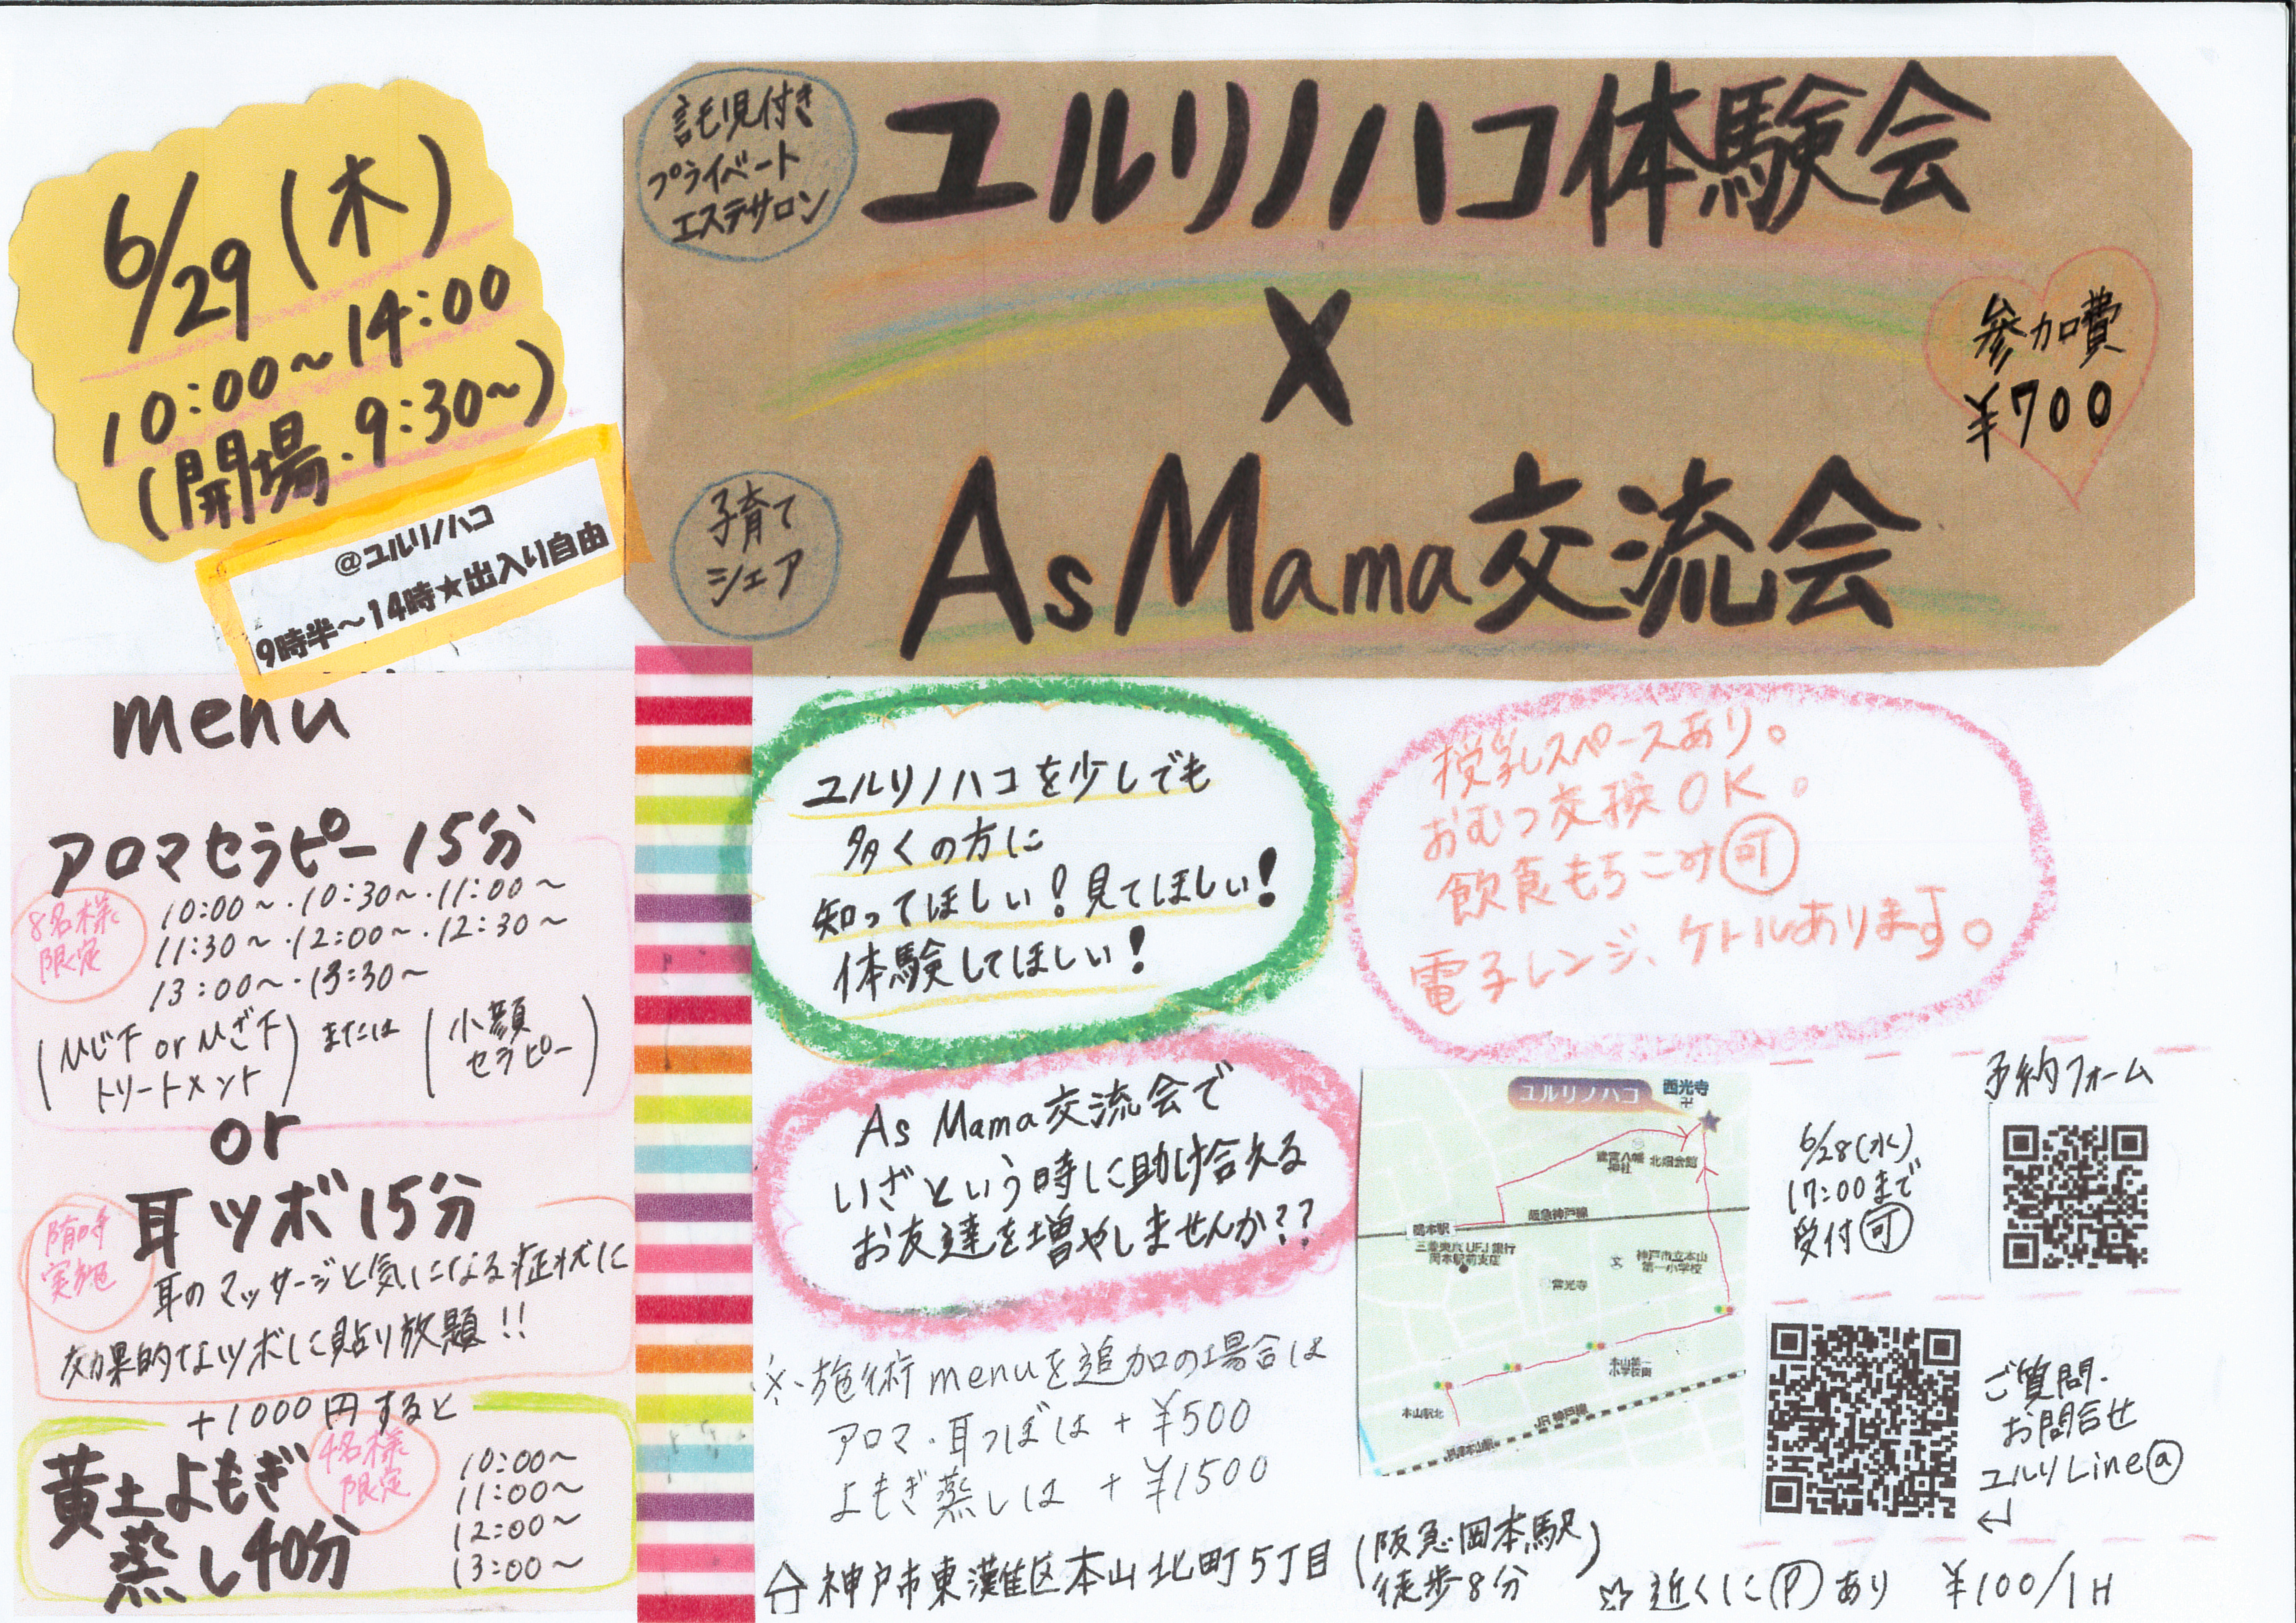 6/29(木)
10:00～14:00
(開場.9:30～)
@ユルリノハコ
9時半～14時★出入り自由
託児付き
プライベート
エステサロン
ユルリノハコ体験会
×
参加費
¥700
子育て
シェア
AsMama交流会
menu
アロマセラピー15分
8名様
限定
10:00～・10:30～・11:00～
11:30～・12:00～・12:30～
13:00～・13:30～
(ひじ下orひざ下
トリートメント)
または
(小顔
セラピー)
or
耳ツボ15分
随時
実施
耳のマッサージと気になる症状に
効果的なツボに貼り放題!!
+1000円すると
黄土よもぎ
蒸し40分
4名様
限定
10:00～
11:00～
12:00～
13:00～
ユルリノハコを少しでも
多くの方に
知ってほしい!見てほしい!
体験してほしい!
授乳スペースあり。
おむつ交換OK。
飲食もちこみ可
電子レンジ、ケトルあります。
As Mama交流会で
いざという時に助け合える
お友達を増やしませんか??
※施術menuを追加の場合は
アロマ・耳つぼは+¥500
よもぎ蒸しは+¥1500
ユルリノハコ
西光寺
北畑会館
阪急神戸線
岡本駅
三菱東京UFJ銀行
岡本駅前支店
神戸市立本山
第一小学校
常光寺
本山駅北
JR神戸線
予約フォーム
6/28(水)
17:00まで
受付可
ご質問・
お問合せ
ユルリLine@
神戸市東灘区本山北町5丁目
(阪急岡本駅
徒歩8分)
☆近くにPあり ¥100/1H